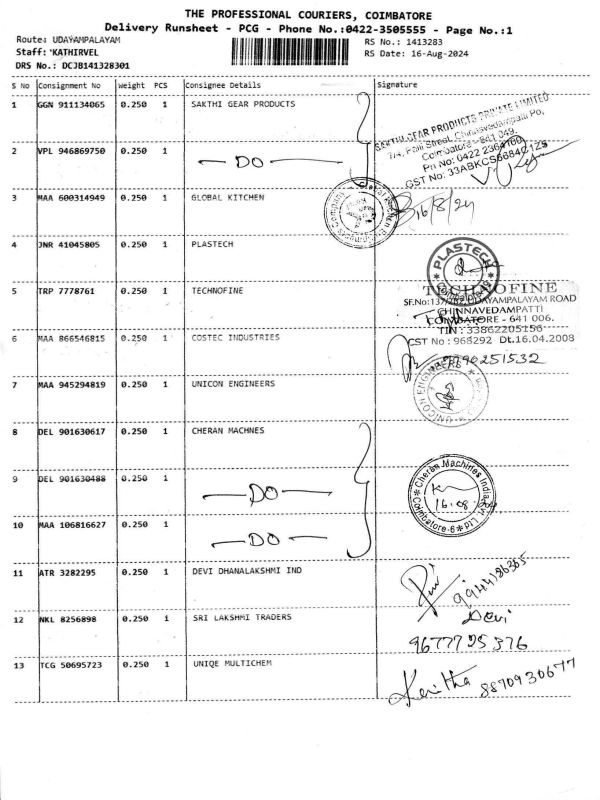 THE PROFESSIONAL COURIERS, COIMBATORE
Delivery Runsheet - PCG - Phone No.:0422-3505555 - Page No.:1
Route: UDAYAMPALAYAM
RS No.: 1413283
Staff: KATHIRVEL
RS Date: 16-Aug-2024
DRS No.: DCJB141328301
S No Consignment No Weight PCS Consignee Details Signature
1 GGN 911134065 0.250 1 SAKTHI GEAR PRODUCTS
SAKTHI GEAR PRODUCTS PRIVATE LIMITED
Coimbatore - 641 049.
2 VPL 946869750 0.250 1 — DO —
3 MAA 600314949 0.250 1 GLOBAL KITCHEN
16/8/24
4 JNR 41045805 0.250 1 PLASTECH
PLASTECH
5 TRP 7778761 0.250 1 TECHNOFINE
TECHNOFINE
UDAYAMPALAYAM ROAD
CHINNAVEDAMPATTI
COIMBATORE - 641 006.
TIN : 33862205156
CST No : 968292 Dt.16.04.2008
6 MAA 866546815 0.250 1 COSTEC INDUSTRIES
7 MAA 945294819 0.250 1 UNICON ENGINEERS
UNICON ENGINEERS
8 DEL 901630617 0.250 1 CHERAN MACHNES
9 DEL 901630488 0.250 1 — DO —
Cheran Machines India Pvt Ltd
Coimbatore-9
16.08.24
10 MAA 106816627 0.250 1 — DO —
11 ATR 3282295 0.250 1 DEVI DHANALAKSHMI IND
9944186365
12 NKL 8256898 0.250 1 SRI LAKSHMI TRADERS
Devi
9677725376
13 TCG 50695723 0.250 1 UNIQE MULTICHEM
8870930677